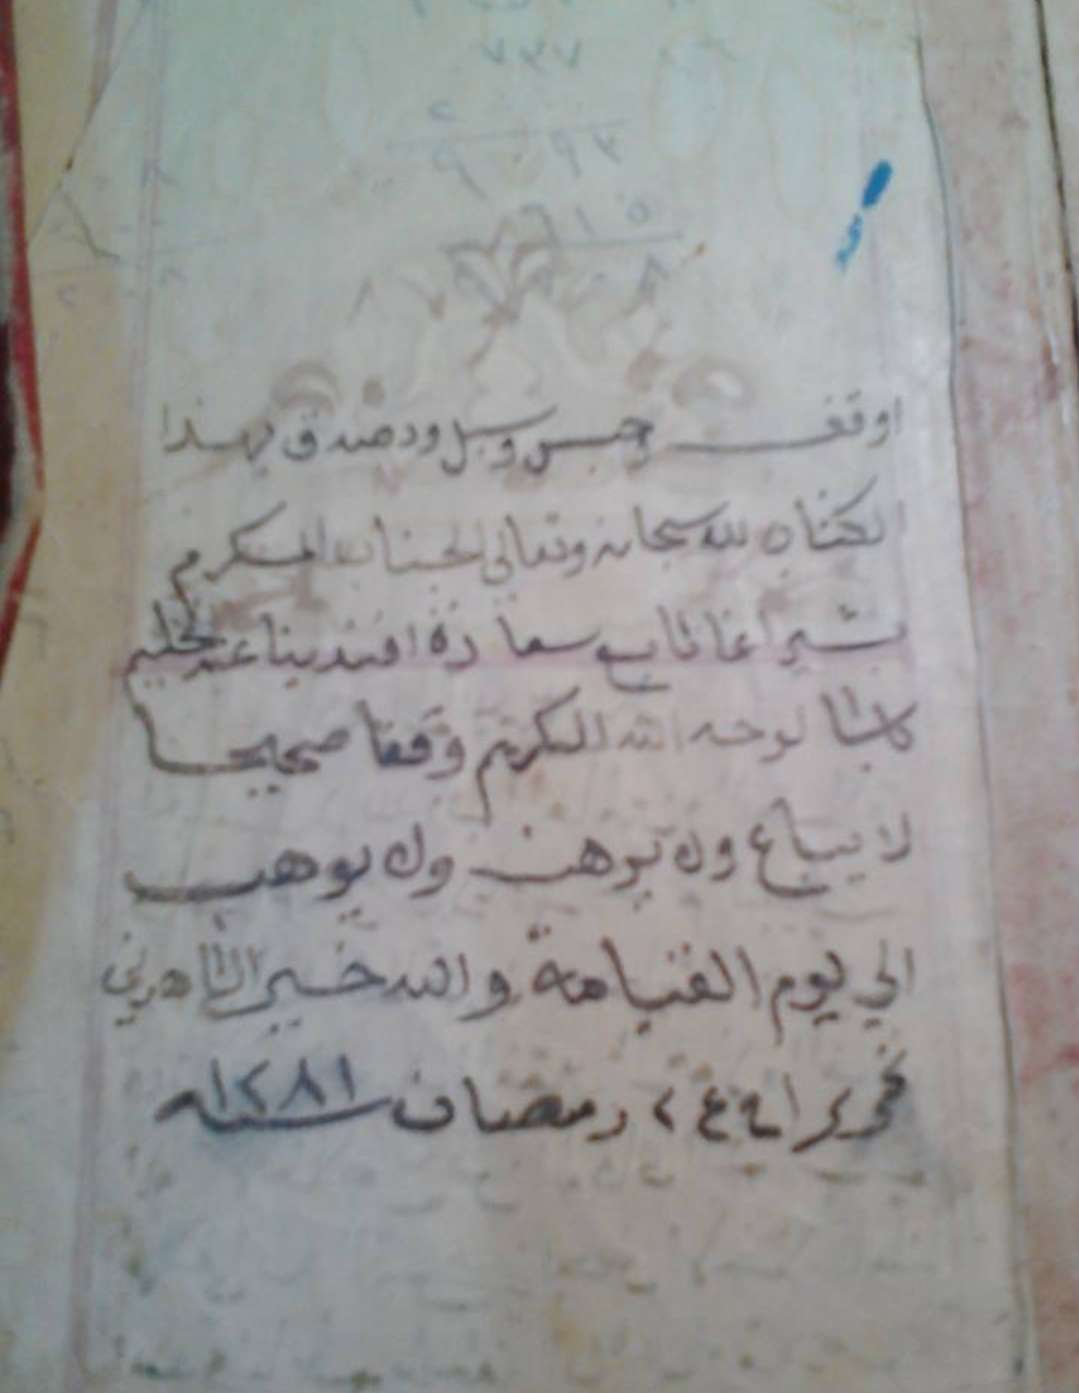 ٧٣٧
اوقف وحبس وسبل وتصدق بهذا
الكتاب لله سبحانه وتعالى الجناب المكرم
بشير اغا تابع سعادة افندينا عبد الحليم
باشا لوجه الله الكريم وقفا صحيحا
لا يباع ولا يرهن ولا يوهب
الي يوم القيامة والله خير الشاهدين
تحريرا في ٢٤ رمضان سنة ١٢٨١